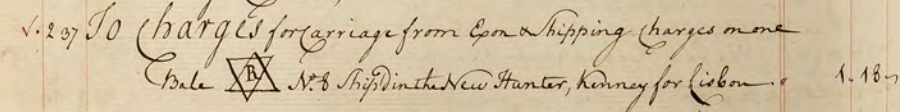 √. 237 To Charges for Carriage from Exon & Shipping Charges on one
Bale B No. 8 Ship'd in the New Hunter, Kenney for Lisbon 1. 18 -